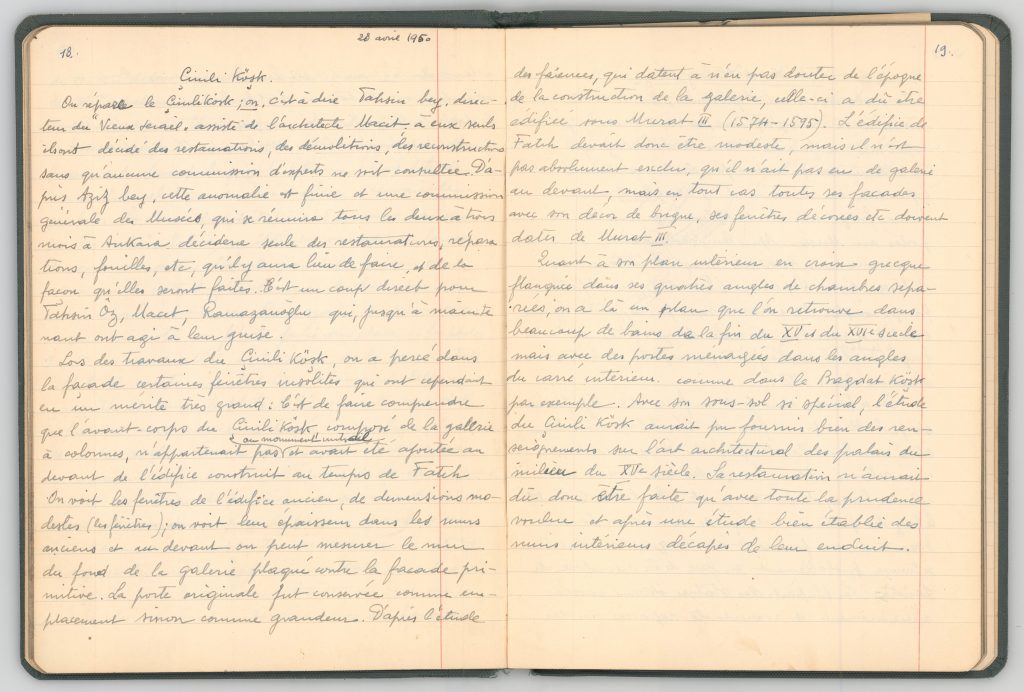 18.
28 avril 1950
Cinili Köşk.
On répare le Çinili Köşk; on, c'est à dire Tahsin bey, direc-
teur du "Vieux Serail" assisté de l'architecte Macit, à eux seuls
ils ont décidé des restaurations, des démolitions, des reconstructions
sans qu'aucune commission d'experts ne soit consultée. D'a-
près Aziz bey, cette anomalie est finie et une commission
générale des Musées, qui se réunira tous les deux à trois
mois à Ankara décidera seule des restaurations, répara-
tions, fouilles, etc, qu'il y aura lieu de faire, et de la
façon qu'elles seront faites. C'est un coup direct pour
Tahsin Öz, Macit, Ramazanoğlu qui, jusqu'à mainte
nant ont agi à leur guise.
Lors des travaux du Çinili Köşk, on a percé dans
la façade certaines fenêtres insolites qui ont cependant
eu un mérite très grand: C'est de faire comprendre
que l'avant-corps du Çinili Köşk, composé de la gallerie
à colonnes, n'appartenait pas au monument initial et avait été ajoutée au
devant de l'édifice construit au temps de Fatih
On voit les fenêtres de l'édifice ancien, de dimensions mo-
destes (les fenêtres); on voit leur épaisseur dans les murs
anciens et au devant on peut mesurer le mur
du fond de la galerie plaqué contre la façade pri-
mitive. La porte originale fut conservée comme em-
placement sinon comme grandeur. D'après l'étude
19.
des faïences, qui datent à n'en pas douter de l'époque
de la construction de la galerie, celle-ci a dû être
édifiée sous Murat III (1574-1595). L'édifice de
Fatih devait donc être modeste, mais il n'est
pas absolument exclu, qu'il n'ait pas eu de galerie
au devant, mais en tout cas toutes ses façades
avec son décor de brique, ses fenêtres décorées etc doivent
dater de Murat III.
Quant à son plan intérieur en croix grecque
flanquée dans ses quatres angles de chambres sépa-
rées, on a là un plan que l'on retrouve dans
beaucoup de bains de la fin du XV et du XVIe siècle
mais avec des portes menagées dans les angles
du carré intérieur. comme dans le Bagdat Köşk
par exemple. Avec son sous-sol si spécial, l'étude
du Çinili Köşk aurait pu fournir bien des ren-
seignements sur l'art architectural des palais du
milieu du XVe siècle. Sa restauration n'aurait
dû donc être faite qu'avec toute la prudence
voulue et après une étude bien établie des
murs intérieurs décapés de leur enduit.